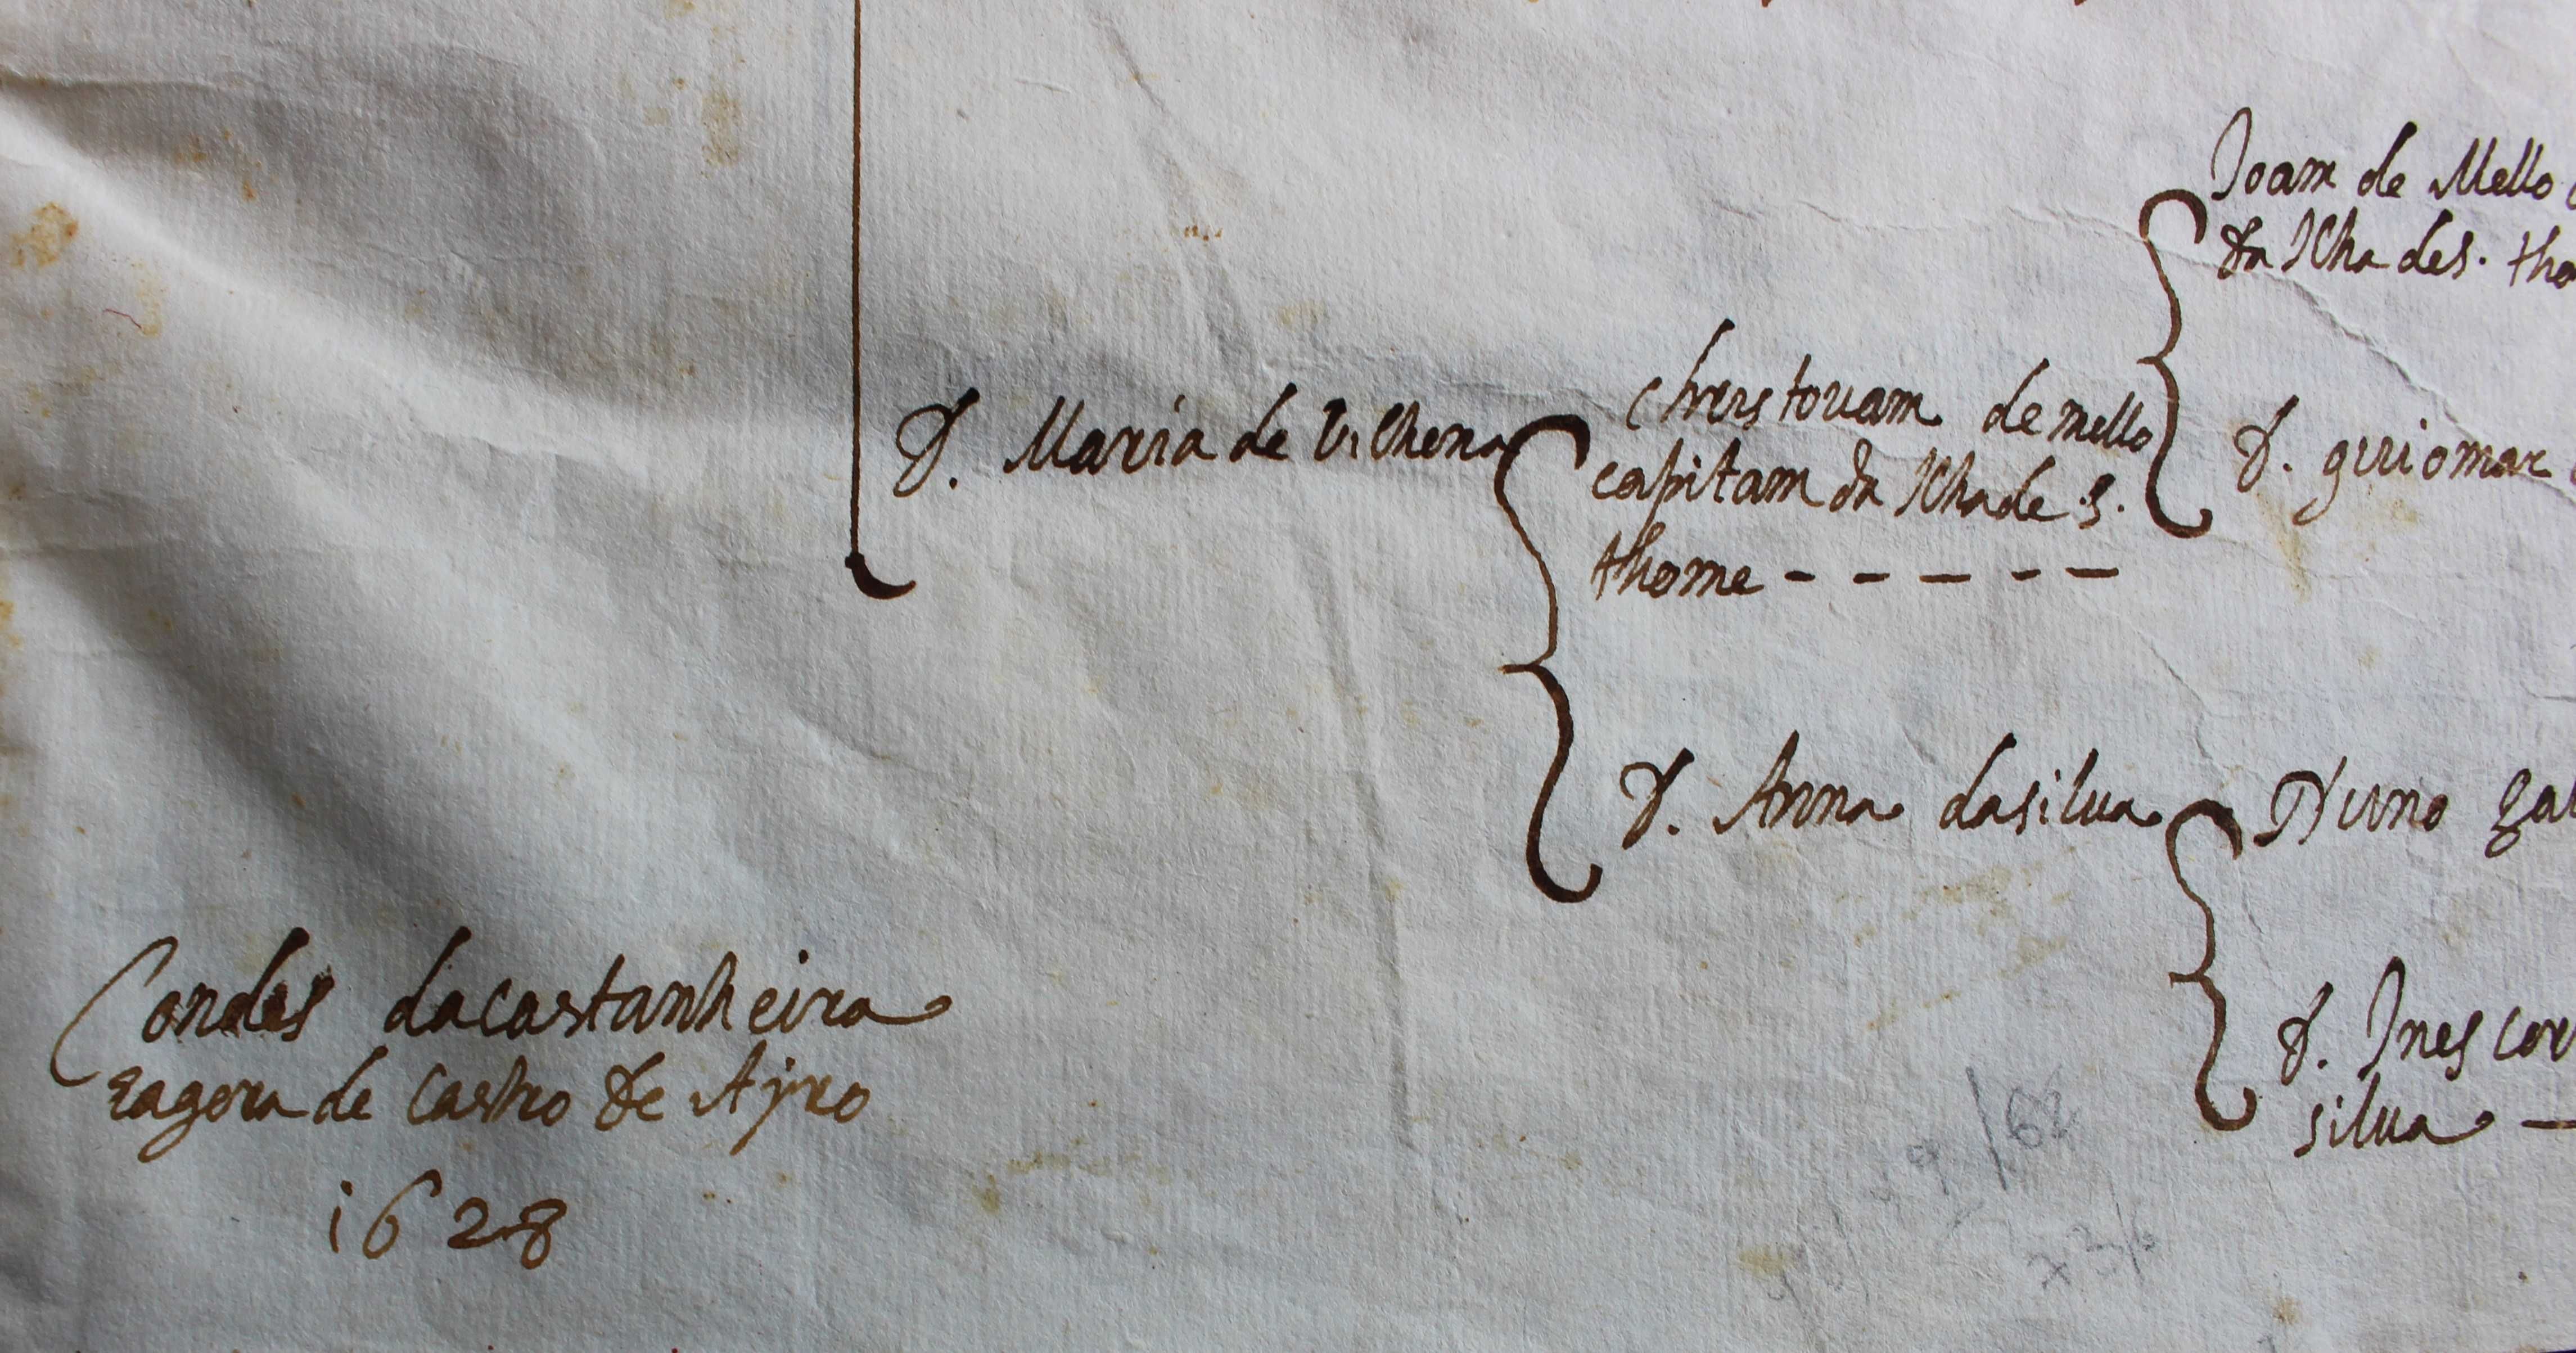 Joam de Mello
da Ilha de S. tho
D. Maria de Vilhena
christouam de mello
capitam da Ilha de S.
thome - - - - -
D. guiomar
D. Anna dasilua
Nuno
Condes dacastanheira
eagora de Castro de Ayro
1628
D. Ines cor
silua -